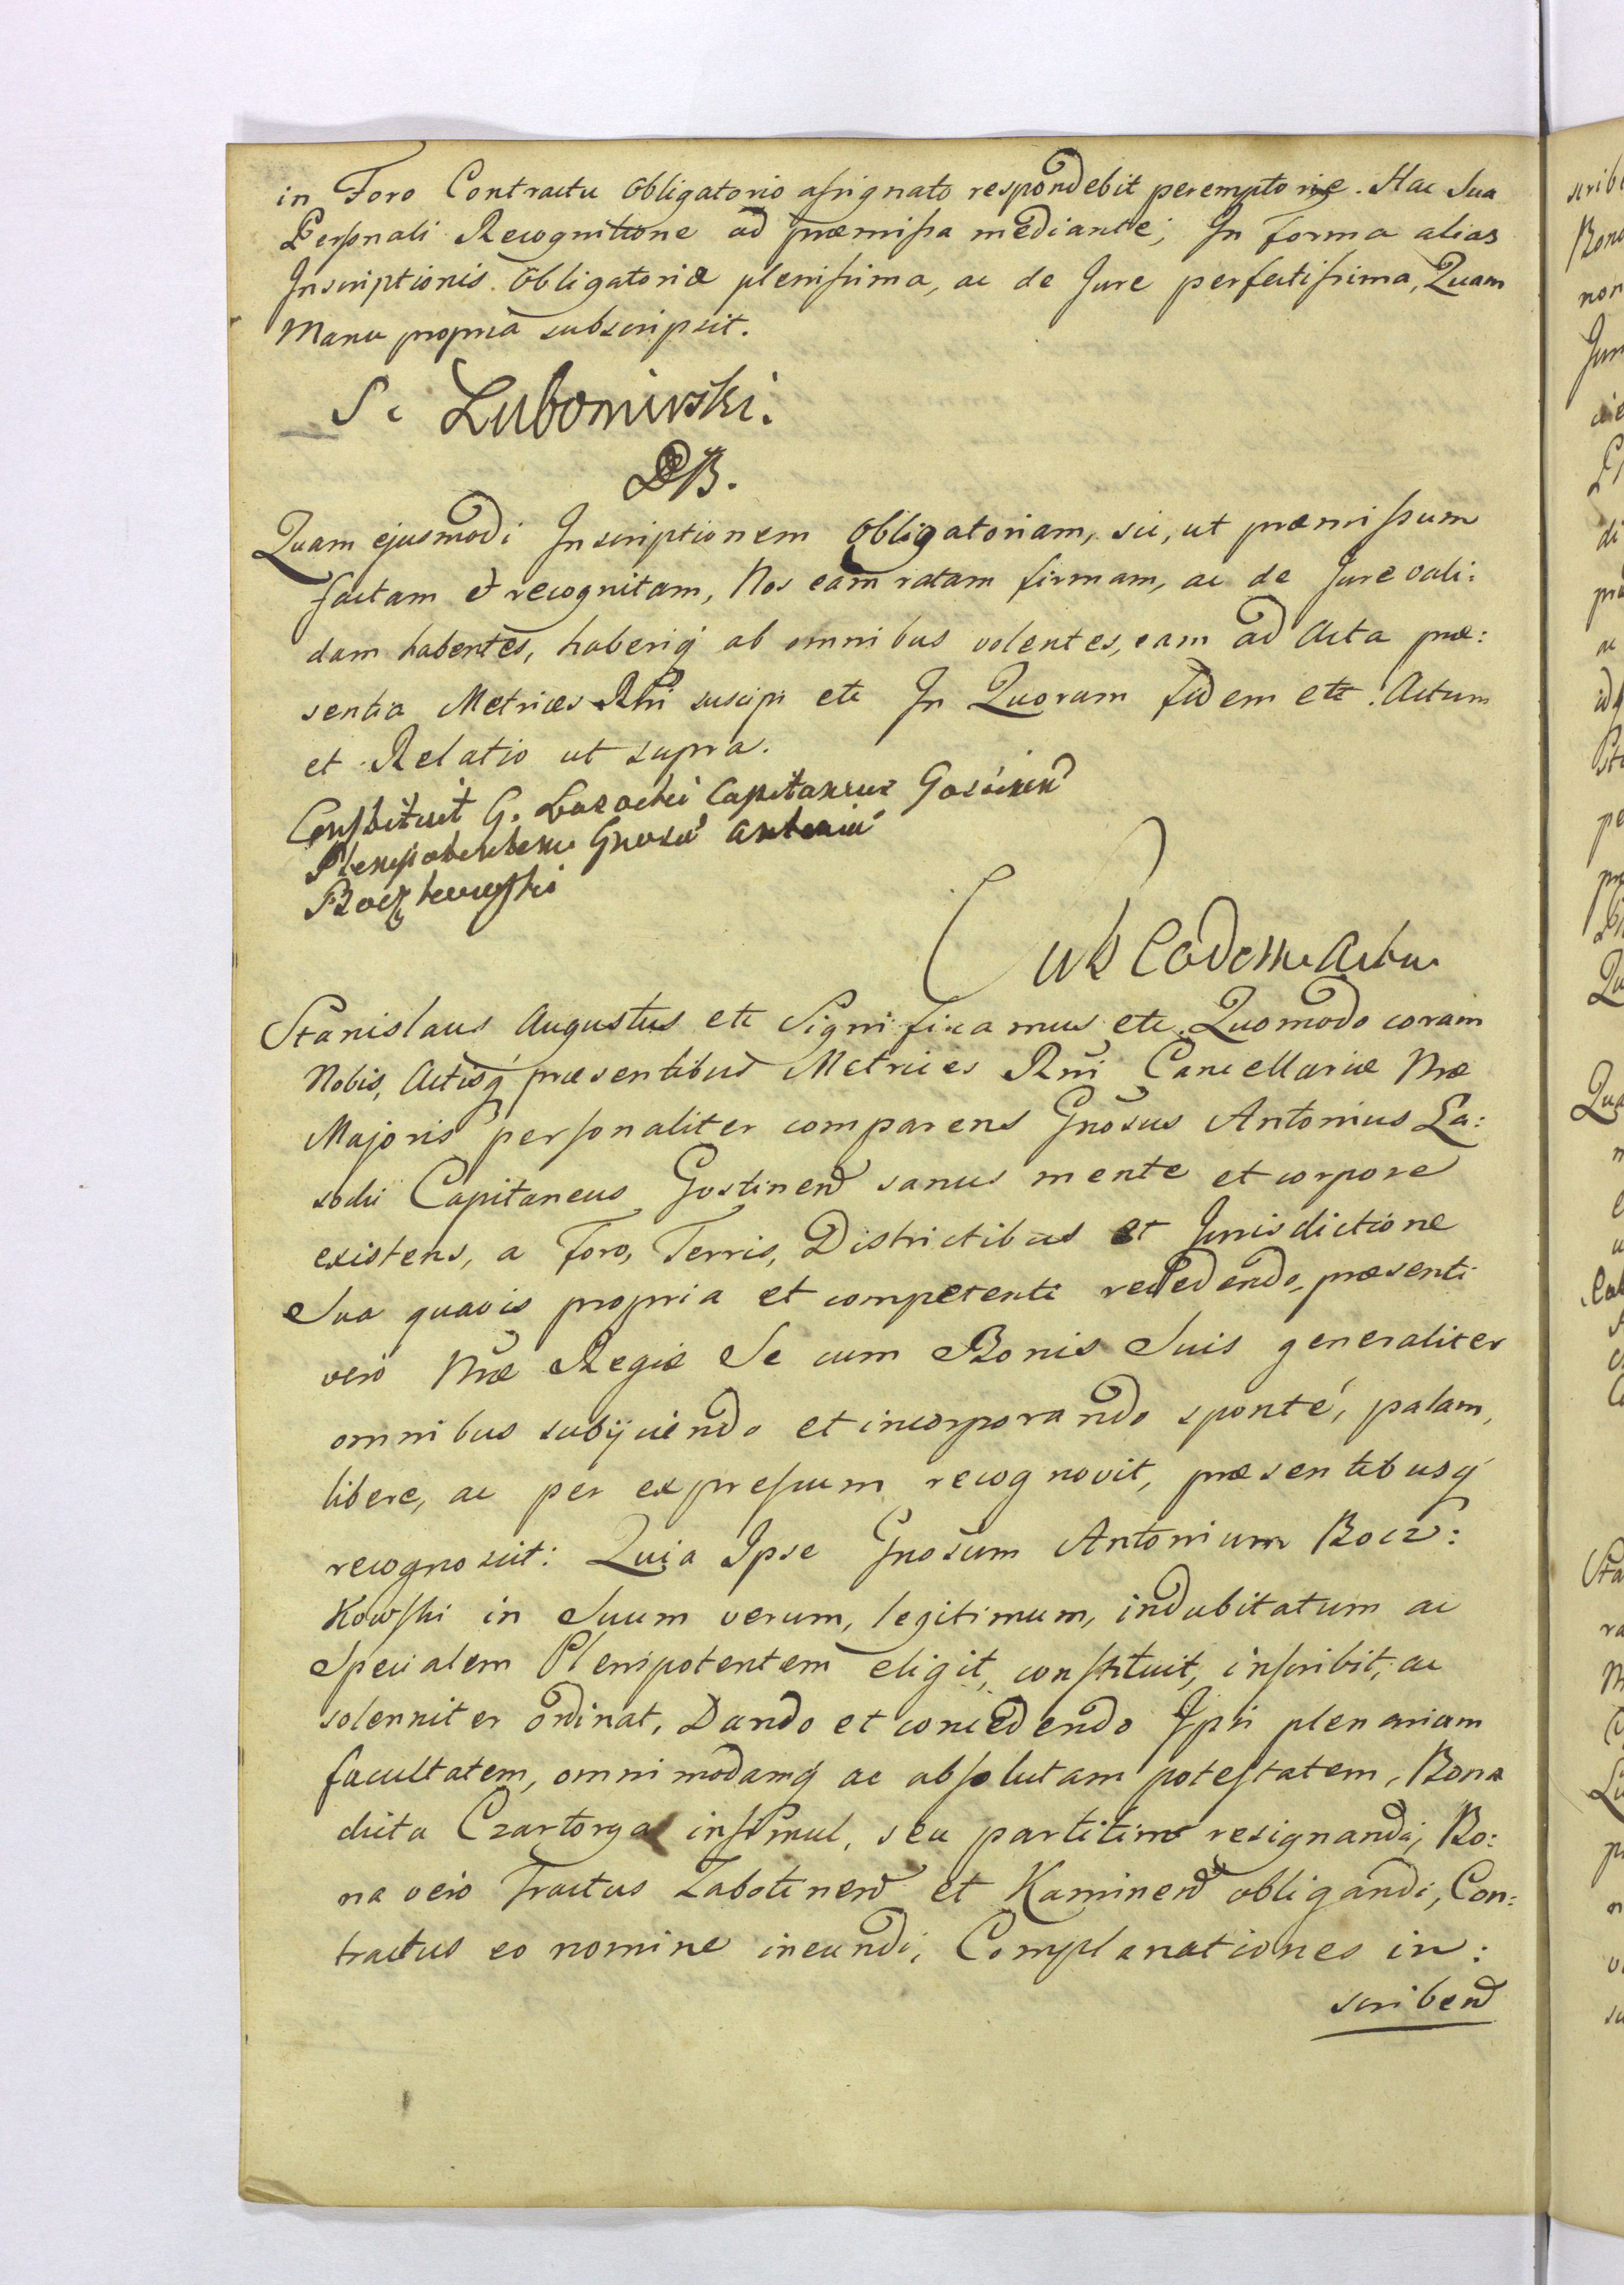 in Foro Contractu obligatorio assignato respondebit peremptorie. Hac Sua
Personali Recognitione ad præmissa mediante; In forma alias
Inscriptionis obligatoriæ plenissima, ac de Jure perfectissima, Quam
Manu propria subscripsit.
S. Lubomirski.
DB.
Quam ejusmodi Inscriptionem obligatoriam, sic, ut præmissum
factam et recognitam, Nos eam ratam firmam, ac de Jure vali:
dam habentes, haberiq́ ab omnibus volentes, eam ad Acta præ:
sentia Metrices Rni suscipi etc In Quorum fidem etc. Actum
et Relatio ut supra.
Constituit G. Lasocki Capitaneus Gostinen
Plenipotentem Gnosu Antoniu
Boczkowski
Sub Eodem Actu
Stanislaus Augustus etc Significamus etc. Quomodo coram
Nobis, Actisq́ præsentibus Metrices Rni Cancellariæ Nræ
Majoris personaliter comparens Gnosus Antonius La:
socki Capitaneus Gostinen sanus mente et corpore
existens, a Foro, Terris, Districtibus et Jurisdictione
Sua quavis propria et competenti recedendo, præsenti
vero Nræ Regiæ Se cum Bonis Suis generaliter
omnibus subijciendo et incorporando sponté, palam,
libere, ac per expressum recognovit, præsentibusq́
recognoscit: Quia Ipse Gnosum Antonium Bocz:
kowski in Suum verum, legitimum, indubitatum ac
Specialem Plenipotentem eligit, constituit, inscribit, ac
solenniter ordinat, Dando et concedendo Ipsi plenariam
facultatem, omnimodamq́ ac absolutam potestatem, Bona
dicta Czartorya insimul, seu partitim resignandi, Bo:
na vero Tractus Zabotinen et Kaminen obligandi, Con:
tractus eo nomine ineundi, Complanationes in:
scriben